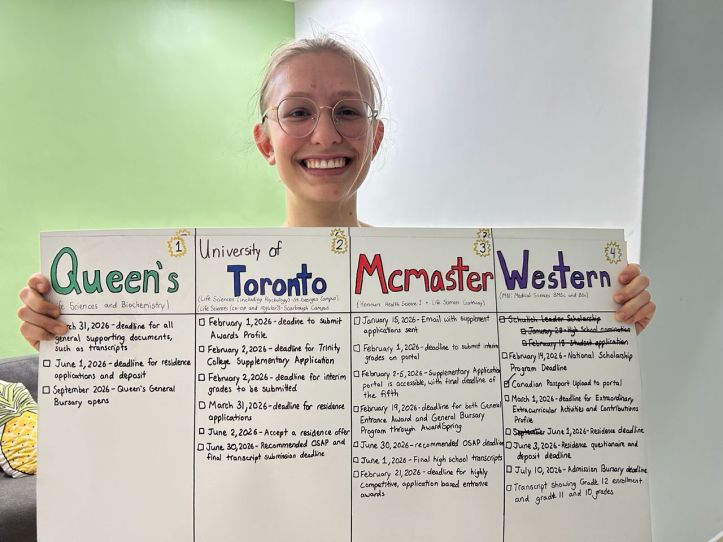 1
Queen's
Life Sciences and Biochemistry)
31, 2026 - deadline for all
general supporting documents,
such as transcripts
June 1, 2026 - deadline for residence
applications and deposit
September 2026 - Queen's General
Bursary opens
2
University of
Toronto
(Life Sciences (including Psychology) - St. Georges Campus)
(Life Sciences (co-op and approved) - Scarborough Campus
February 1, 2026 - deadline to submit
Awards Profile
February 2, 2026 - deadline for Trinity
College Supplementary Application
February 2, 2026 - deadline for interim
grades to be submitted
March 31, 2026 - deadline for residence
applications
June 2, 2026 - Accept a residence offer
June 30, 2026 - Recommended OSAP and
final transcript submission deadline
3
Mcmaster
(Honours Health Science I + Life Sciences Gateway)
January 15, 2026 - Email with supplement
applications sent
February 1, 2026 - deadline to submit interim
grades on portal
February 2-5, 2026 - Supplementary Application
portal is accessible, with final deadline of
the fifth
February 19, 2026 - deadline for both General
Entrance Award and General Bursary
Program through AwardSpring
June 30, 2026 - recommended OSAP deadline
June 1, 2026 - Final high school transcripts
February 21, 2026 - deadline for highly
competitive, application based entrance
awards
4
Western
Medical Sciences BMSc and BSc)
Schulich Leader Scholarship
January 28 - High School nomination
February 18 - Student application
February 14, 2026 - National Scholarship
Program Deadline
Canadian Passport Upload to portal
March 1, 2026 - deadline for Extraordinary
Extracurricular Activities and Contributions
Profile
September June 1, 2026 - Residence deadline
June 3, 2026 - Residence questionaire and
deposit deadline
July 10, 2026 - Admission Bursary deadline
Transcript showing Grade 12 enrollment
and grade 11 and 10 grades